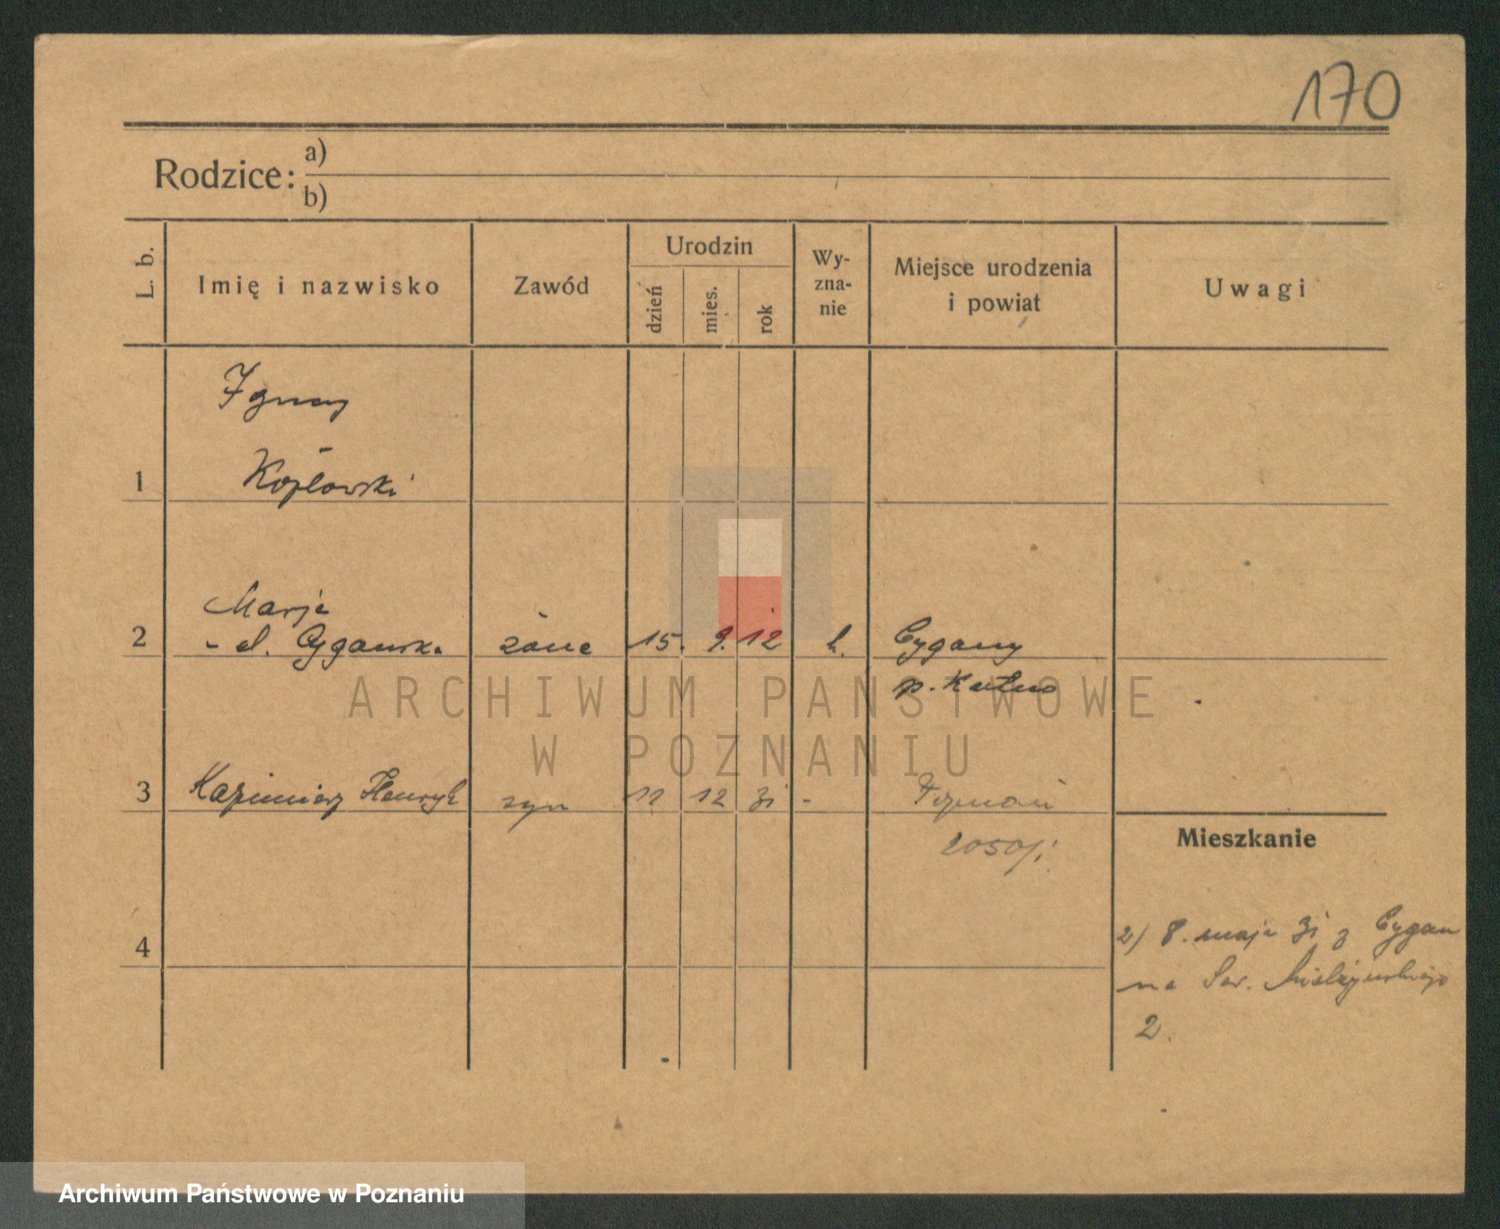 170
Rodzice:
a)
b)
L. b.
Imię i nazwisko
Zawód
Urodzin
dzień
mies.
rok
Wy-
zna-
nie
Miejsce urodzenia
i powiat
Uwagi
Ignacy
1 Kozłowski
Marja
2 żona 15. 9. 12 Cygany
p. Kutno
3 Kazimierz Henryk syn 12 31 - Poznań
2050/
Mieszkanie
4
2) 8. maja 31 z Cygan
na Sew. Mielżyńskiego
2.
ARCHIWUM PAŃSTWOWE
W POZNANIU
Archiwum Państwowe w Poznaniu